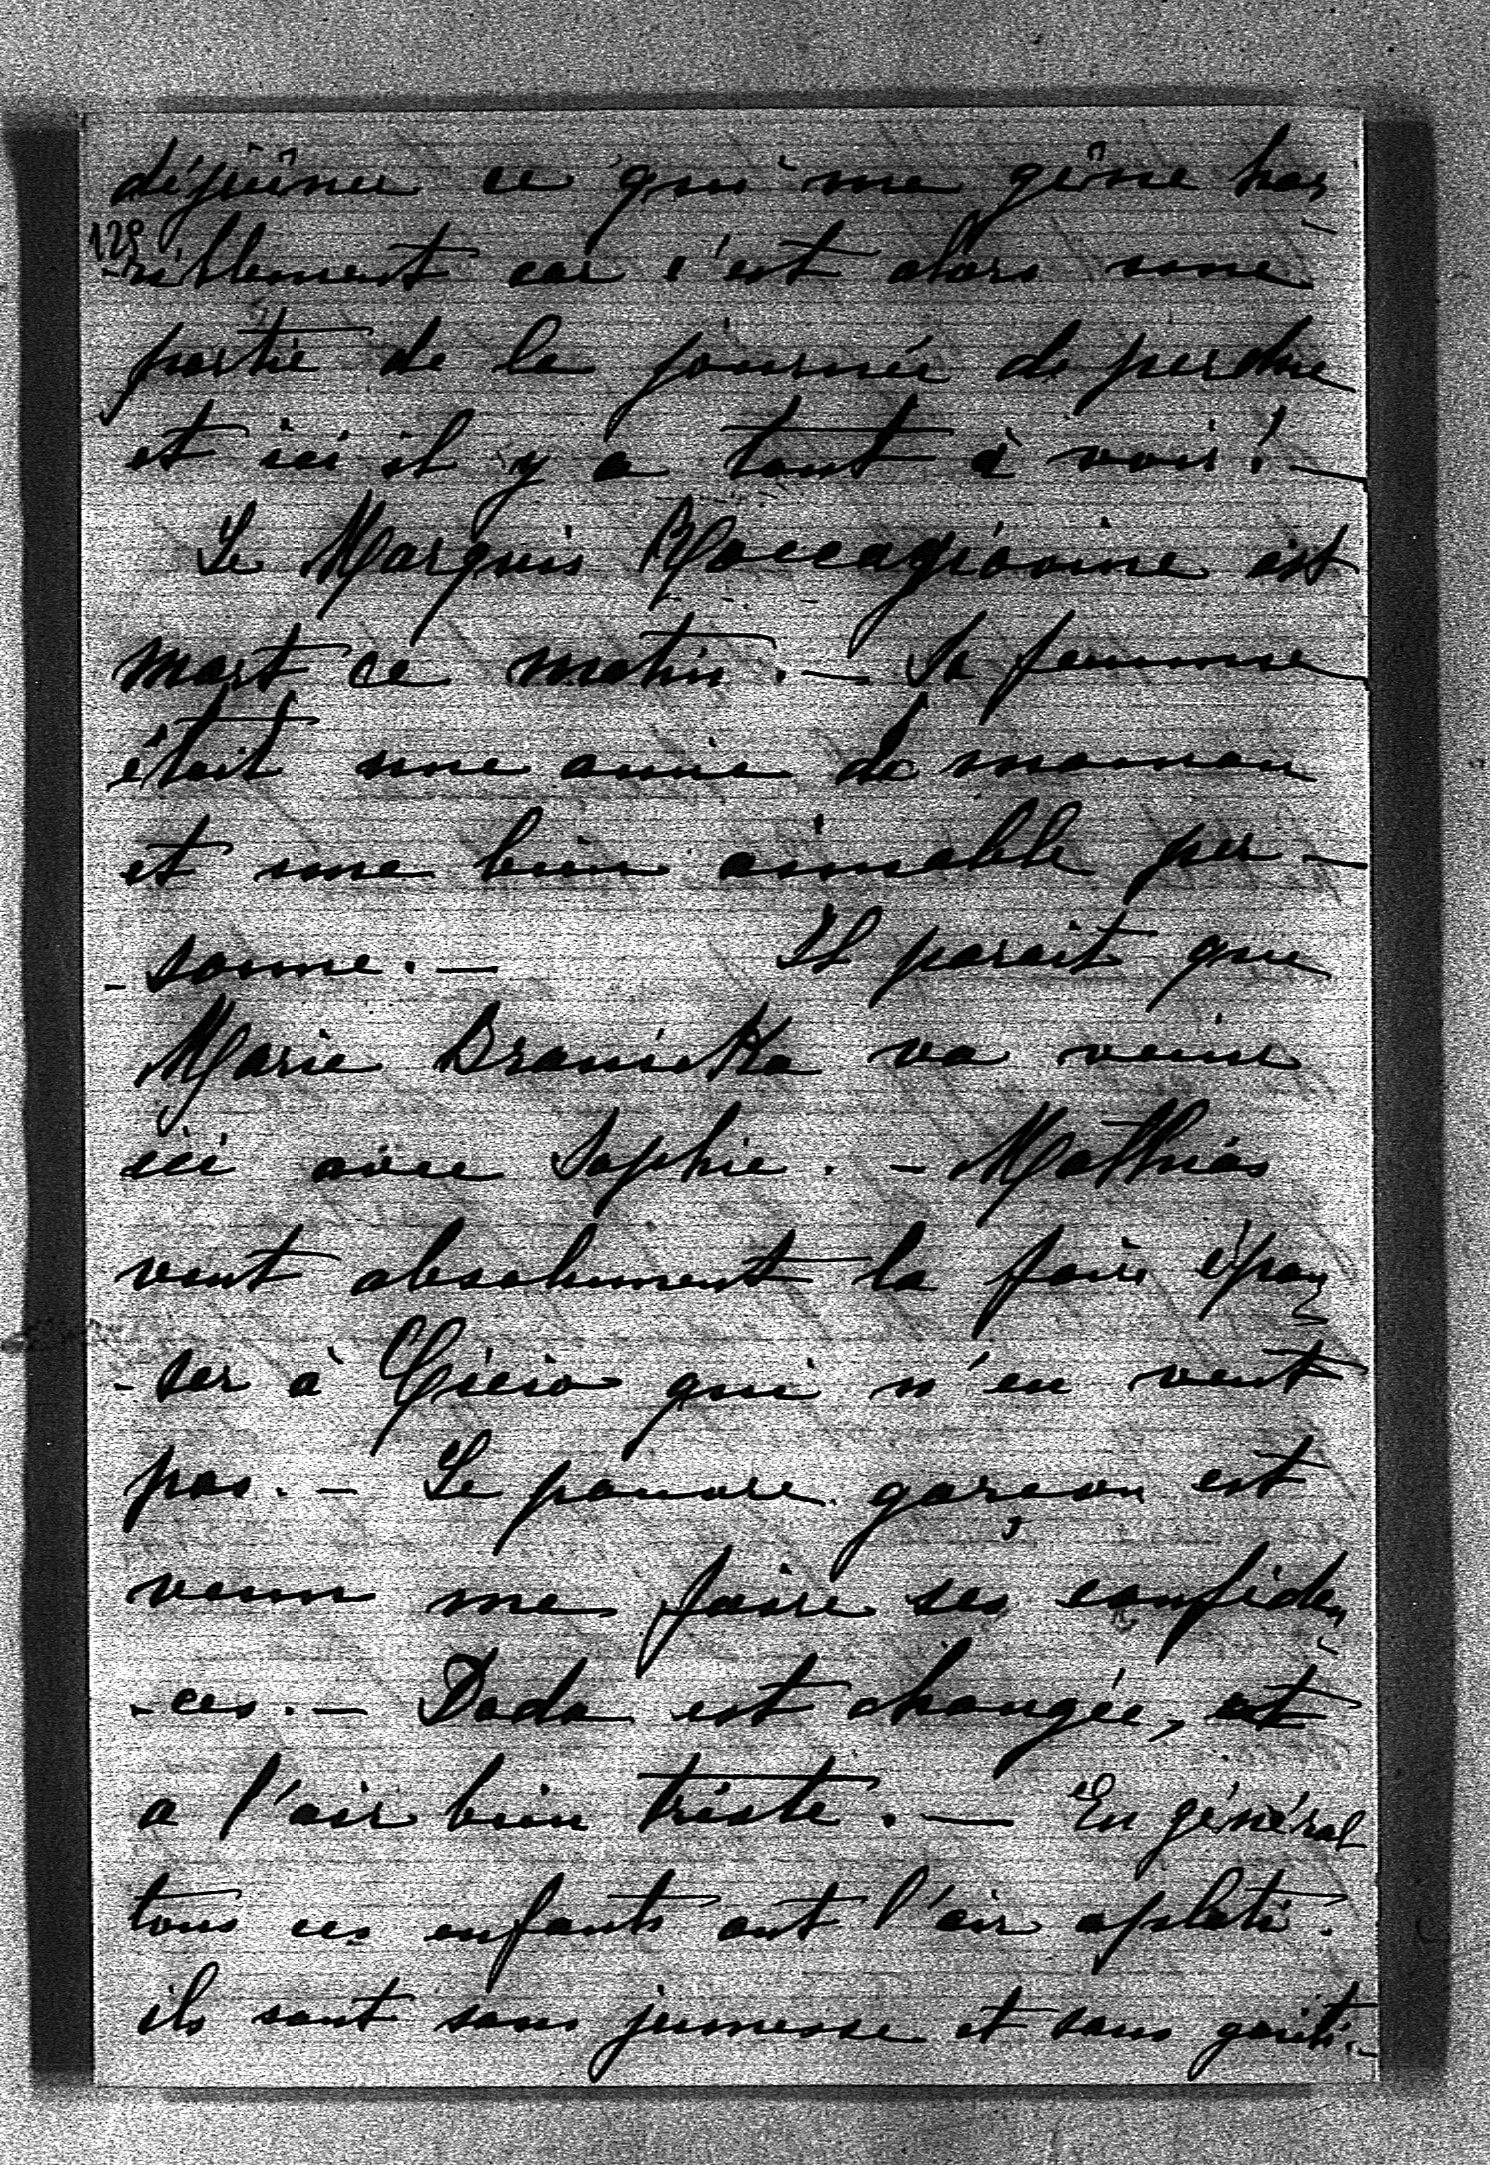 déjeûner ce qui me gêne hor
129
-riblement car c'est alors une
partie de la journée de perdue
et ici il y a tant à voir! —
Le Marquis Roccagiovine est
mort ce matin. — Sa femme
était une amie de maman
et une bien aimable per-
-sonne. — Il parait que
Marie Branicka va venir
ici avec Sophie. — Mathias
veut absolument la faire épou
-ser à qui n'en veut
pas. — Le pauvre garçon est
venu me faire ses confiden
-ces. — Dada est changée, et
a l'air bien triste. — En général
tous ces enfants ont l'air aplati.
ils sont sans jeunesse et sans gaieté. -